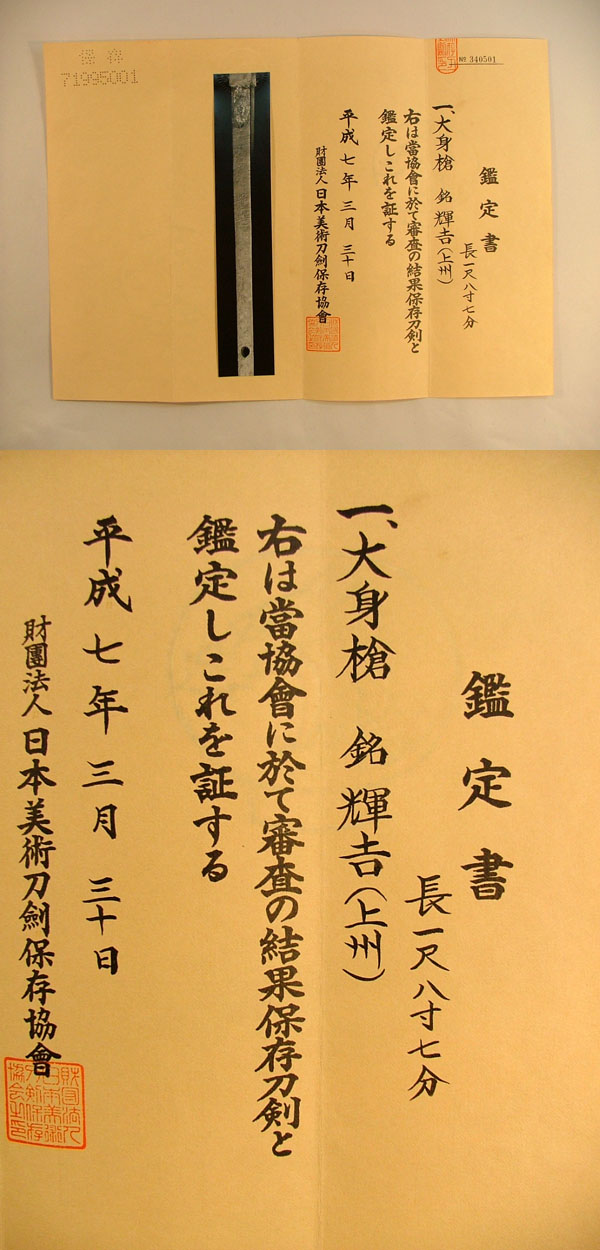 保存
71995001
No 340501
鑑定書
長一尺八寸七分
一、大身槍 銘 輝吉(上州)
右は當協會に於て審査の結果保存刀剣と
鑑定しこれを証する
平成七年三月三十日
財團法人日本美術刀劍保存協會
鑑定書
長一尺八寸七分
一、大身槍 銘 輝吉(上州)
右は當協會に於て審査の結果保存刀剣と
鑑定しこれを証する
平成七年三月三十日
財團法人日本美術刀劍保存協會
財団法人
日本美術
刀剣保存
協会之印